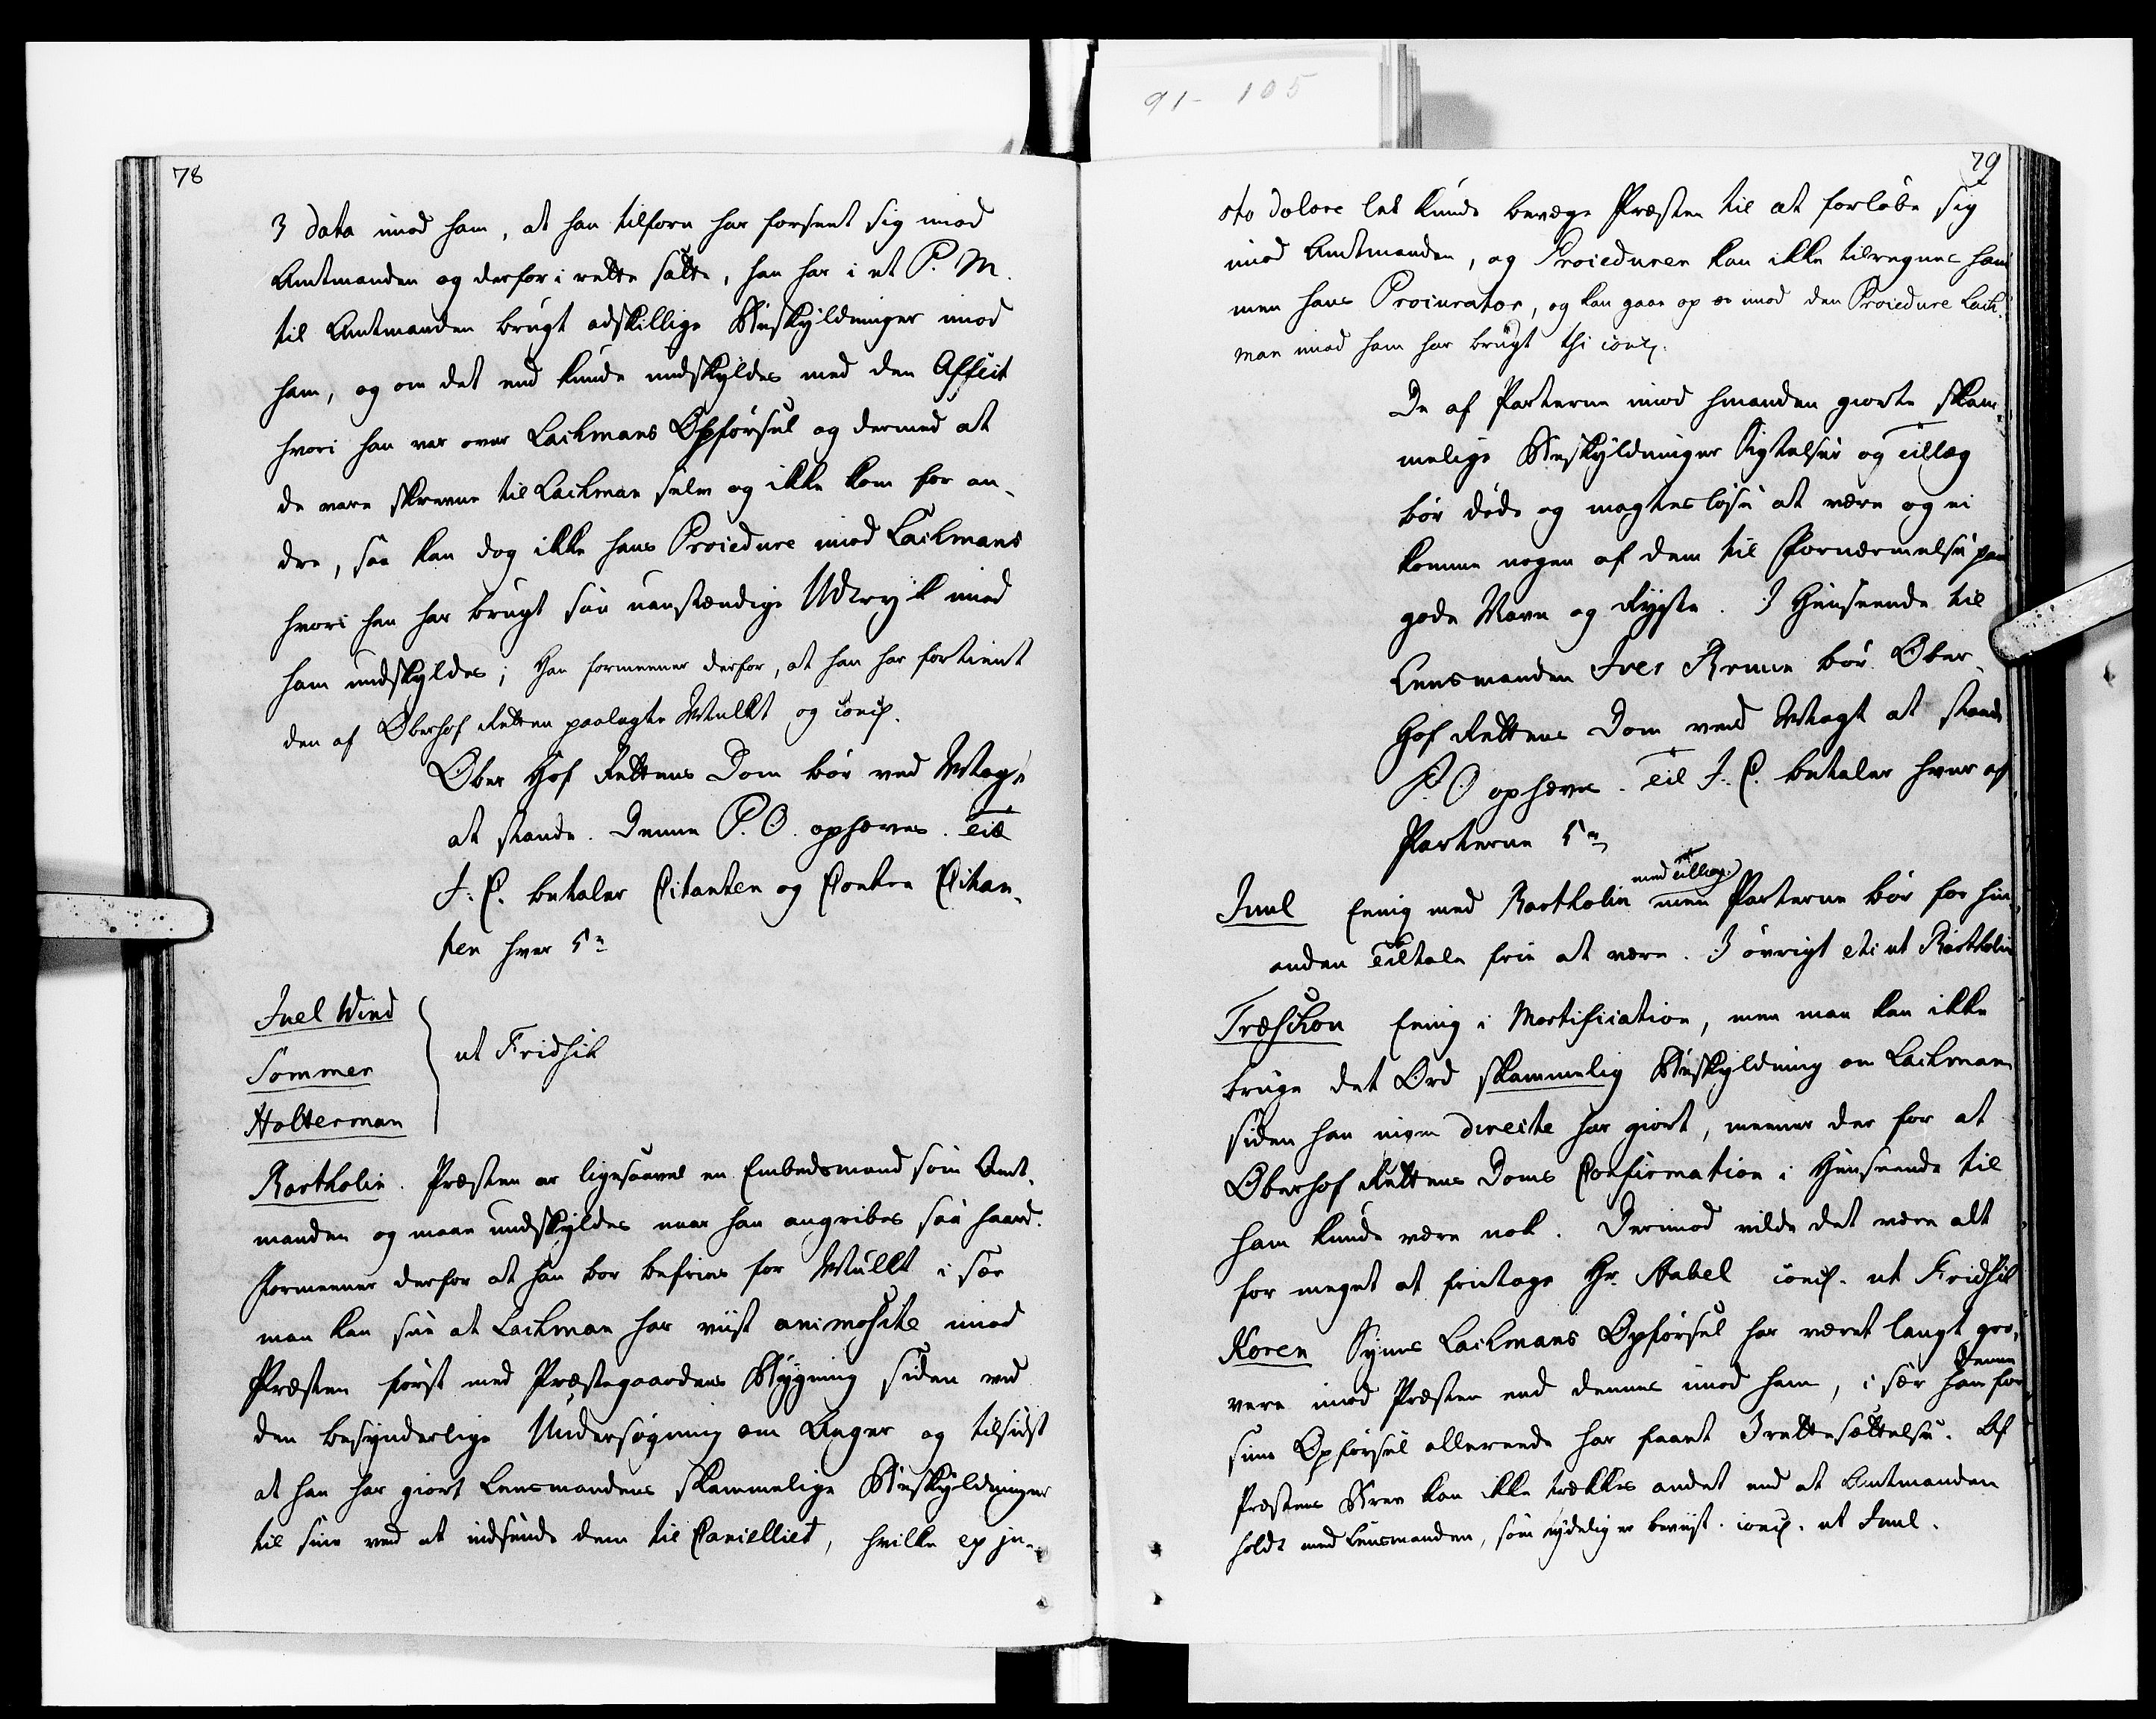 91-105
78
3 data imod ham, at han tilforn har forseet sig mod
Amtmanden og derfor i rette satte, han har i et P. M.
til Amtmanden brugt adskillige Beskyldninger imod
ham, og om det end kunde undskyldes med den Affect
hvori han var over Lachmans Opførsel og dermed at
de vare skrevne til Lachman selv og ikke kom for an-
dre, saa kan dog ikke hans Procedure imod Lachmans
hvori han har brugt saa uanstændige Udtryk imod
ham undskyldes; Han formeener derfor, at han har fortient
den af Oberhof Retten paalagte Mulkt og concl.
Ober Hof Rettens Dom bør ved Magt
at stande. Denne P. O. ophæves. Til
J. C. betaler Citanten og Contra Citan-
ten hver 5
Juel Wind
Sommer
Holterman
ut Fridsch
Bartholin. Præsten er ligesaavel en Embedsmand som Amt-
manden og maae undskyldes naar han angribes saa haard.
formeener derfor at han bør befries for Mulkt i sær
man kan see at Lachman har viist animosite imod
Præsten først med Præstegaardens Bygning siden ved
den besynderlige Undersøgning om Anger og tilsidst
at han har giort Lensmandens skammelige Beskyldninger
til sine ved at indsende dem til Cancelliet, hvilke ex ju-
79
sto dolore let kunde bevæge Præsten til at forløbe sig
imod Amtmanden, og Proceduren kan ikke tilregnes ham
men hans Procurator, og kan gaae op imod den Procedure Lach-
man imod ham har brugt thi concl.
De af Parterne imod hinanden giorte skam-
melige Beskyldninger Sigtelser og Tillæg
bør døde og magtesløse at være og ei
komme nogen af dem til Fornærmelse paa
gode Navn og Rygte. I Henseende til
Lensmanden Iver Brunn bør Ober-
Hof Rettens Dom ved Magt at stande
P. O ophæves. Til J. C. betaler hver af
Parterne 5
Juul Eenig med Bartholin med Tillæg men Parterne bør for hin-
anden Tiltale frie at være. I øvrigt etc ut Bartholin
Træschou Eenig i Mortification, men man kan ikke
bruge det Ord skammelig Beskyldning om Lachman
siden han ingen directe har giort, meener der for at
Oberhof Rettens Doms Confirmation i Henseende til
ham kunde være nok. Derimod vilde det være alt
for meget at fritage Hr. Aabel concl. ut Fridsch
Koren Synes Lachmans Opførsel har været langt gro-
vere imod Præsten end dennes imod ham, i sær denne han for
sine Opførsel allerede har faaet Irettesættelse. Af
Præstens Brev kan ikke trækkes andet end at Amtmanden
holdt med Lensmanden, som tydelig er beviist. concl. ut Juul.